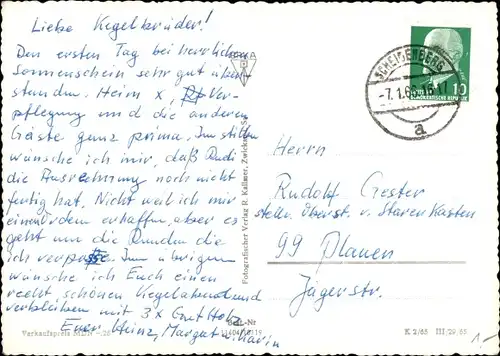 Liebe Kegelbrüder!
Den ersten Tag bei herrlichem
Sonnenschein sehr gut über-
standen. Heim x, Ver-
pflegung und die anderen
Gäste ganz prima. Im stillen
wünsche ich mir, daß Rudi
die Ausrechnung noch nicht
fertig hat. Nicht weil ich mir
einen Orden erhoffe, aber es
geht um die Runden die
ich verpasse. Im übrigen
wünsche ich Euch einen
recht schönen Kegelabend und
verbleiben mit 3x Gut Holz
Euer Heinz, Margat u. Karin
Verkaufspreis MDN
Fotografischer Verlag R. Kallmer, Zwickau
SCHEIBENBERG
-7.1.66.16-17
a
10
DEMOKRATISCHE REPUBLIK
Herrn
Rudolf Gester
stellv. Oberst. v. Starenkasten
99 Plauen
Jägerstr.
K 2/65 III/29/65